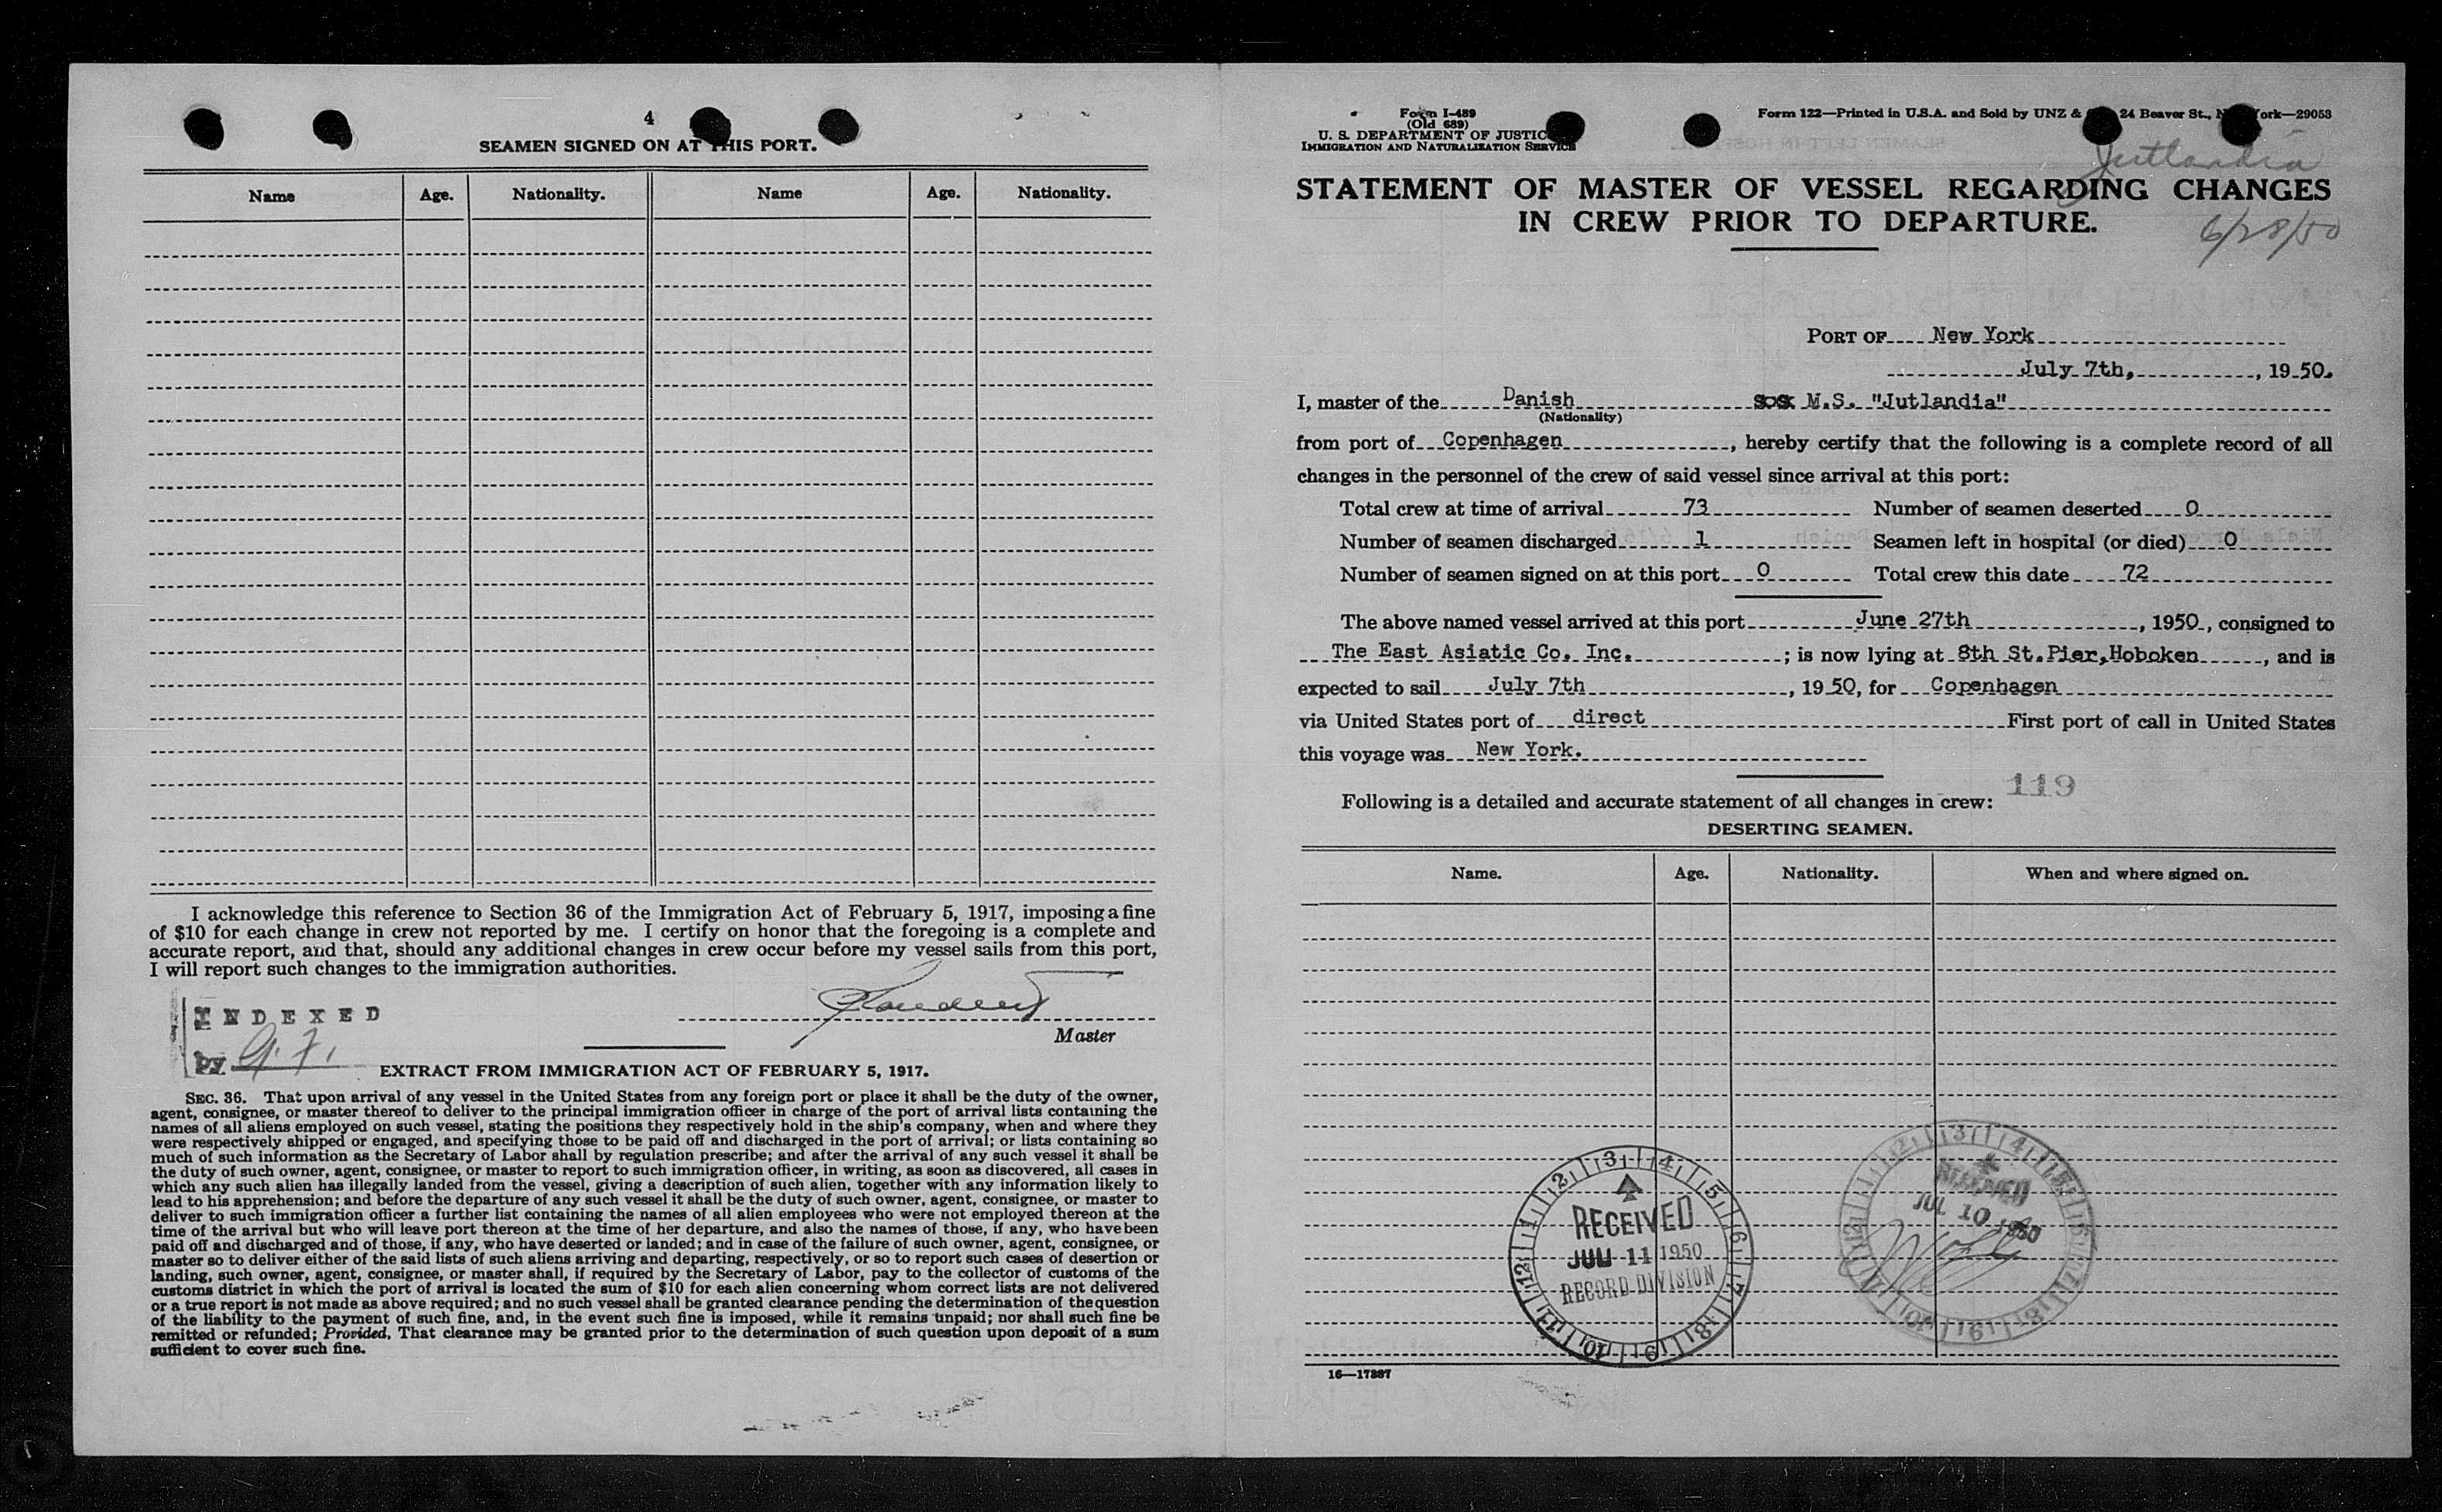 4
SEAMEN SIGNED ON AT THIS PORT.
Name Age. Nationality. Name Age. Nationality.
I acknowledge this reference to Section 36 of the Immigration Act of February 5, 1917, imposing a fine
of $10 for each change in crew not reported by me. I certify on honor that the foregoing is a complete and
accurate report, and that, should any additional changes in crew occur before my vessel sails from this port,
I will report such changes to the immigration authorities.
INDEXED
Master
by G. F.
EXTRACT FROM IMMIGRATION ACT OF FEBRUARY 5, 1917.
SEC. 36. That upon arrival of any vessel in the United States from any foreign port or place it shall be the duty of the owner,
agent, consignee, or master thereof to deliver to the principal immigration officer in charge of the port of arrival lists containing the
names of all aliens employed on such vessel, stating the positions they respectively hold in the ship's company, when and where they
were respectively shipped or engaged, and specifying those to be paid off and discharged in the port of arrival; or lists containing so
much of such information as the Secretary of Labor shall by regulation prescribe; and after the arrival of any such vessel it shall be
the duty of such owner, agent, consignee, or master to report to such immigration officer, in writing, as soon as discovered, all cases in
which any such alien has illegally landed from the vessel, giving a description of such alien, together with any information likely to
lead to his apprehension; and before the departure of any such vessel it shall be the duty of such owner, agent, consignee, or master to
deliver to such immigration officer a further list containing the names of all alien employees who were not employed thereon at the
time of the arrival but who will leave port thereon at the time of her departure, and also the names of those, if any, who have been
paid off and discharged and of those, if any, who have deserted or landed; and in case of the failure of such owner, agent, consignee, or
master so to deliver either of the said lists of such aliens arriving and departing, respectively, or so to report such cases of desertion or
landing, such owner, agent, consignee, or master shall, if required by the Secretary of Labor, pay to the collector of customs of the
customs district in which the port of arrival is located the sum of $10 for each alien concerning whom correct lists are not delivered
or a true report is not made as above required; and no such vessel shall be granted clearance pending the determination of the question
of the liability to the payment of such fine, and, in the event such fine is imposed, while it remains unpaid; nor shall such fine be
remitted or refunded; Provided, That clearance may be granted prior to the determination of such question upon deposit of a sum
sufficient to cover such fine.
Form I-489
(Old 689)
U. S. DEPARTMENT OF JUSTICE
IMMIGRATION AND NATURALIZATION SERVICE
Form 122—Printed in U.S.A. and Sold by UNZ & 24 Beaver St., New York—29053
Jutlandia
STATEMENT OF MASTER OF VESSEL REGARDING CHANGES
IN CREW PRIOR TO DEPARTURE.
6/28/50
PORT OF New York
July 7th, , 1950.
I, master of the Danish M.S. "Jutlandia"
(Nationality)
from port of Copenhagen , hereby certify that the following is a complete record of all
changes in the personnel of the crew of said vessel since arrival at this port:
Total crew at time of arrival 73 Number of seamen deserted 0
Number of seamen discharged 1 Seamen left in hospital (or died) 0
Number of seamen signed on at this port 0 Total crew this date 72
The above named vessel arrived at this port June 27th , 1950, consigned to
The East Asiatic Co. Inc. ; is now lying at 8th St. Pier, Hoboken , and is
expected to sail July 7th , 1950, for Copenhagen
via United States port of direct First port of call in United States
this voyage was New York.
119
Following is a detailed and accurate statement of all changes in crew:
DESERTING SEAMEN.
Name. Age. Nationality. When and where signed on.
RECEIVED
JUL 11 1950
RECORD DIVISION
RECEIVED
JUL 10 1950
16—17887